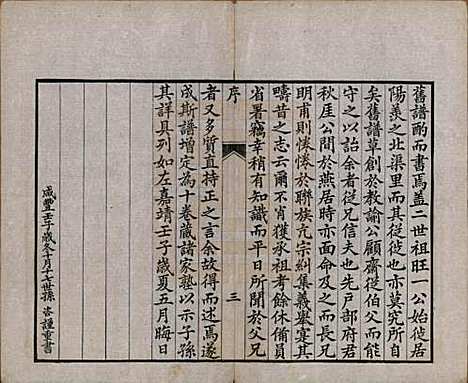 舊譜酌而書焉蓋二世祖旺一公始從居
陽羨之北渠里而其從徙也亦莫究所自
矣舊譜草創於教諭公顧齋從伯父而能
守之以詒余者從兄信夫也先戶部府君
秋厓公間於燕居時亦面命之而長兄
明甫則惓惓於聯族亢宗糾集義舉寔其
疇昔之志云爾不肖獲承祖考餘休備員
省署竊幸稍有知識而平日所聞於父兄
序
三
者又多質直持正之言余故識而述焉遂
成斯譜增定為十卷藏諸家塾以示子孫
其詳具列如左嘉靖壬子歲夏五月晦日
咸豐壬子歲冬十月十七世孫 谨重書